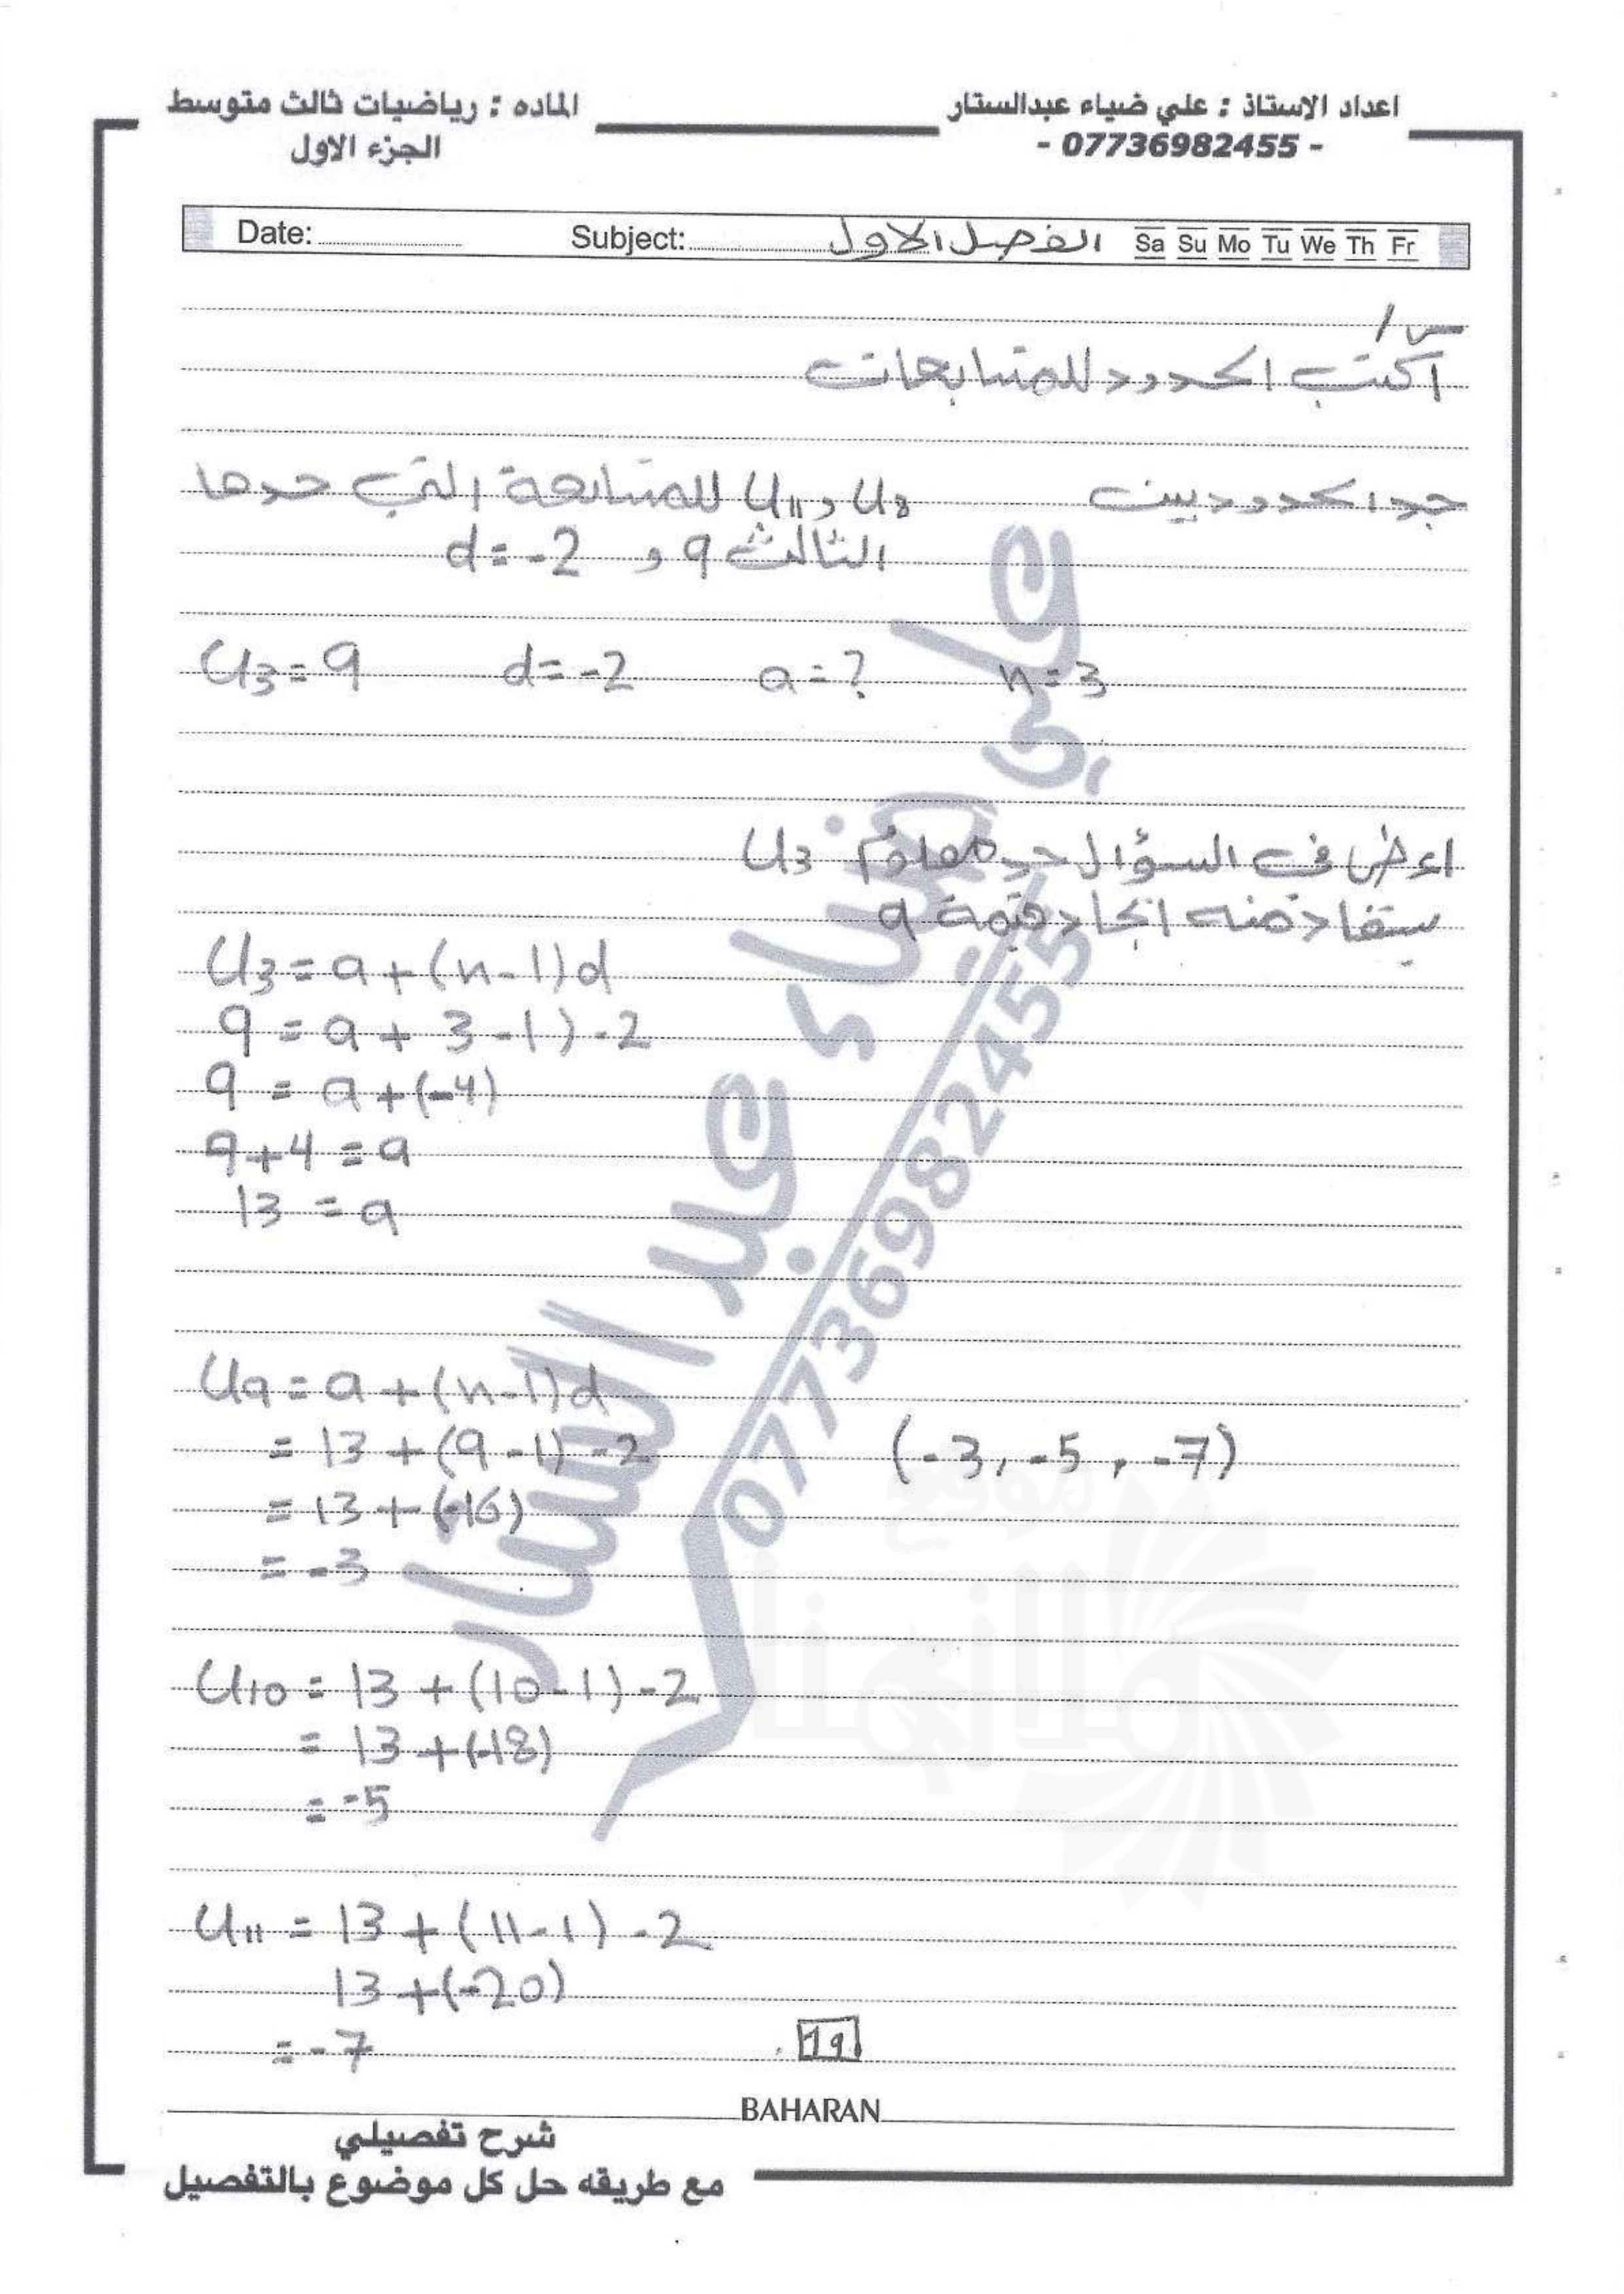 اعداد الاستاذ : علي ضياء عبدالستار
- 07736982455 -
الماده : رياضيات ثالث متوسط
الجزء الاول
Date: Subject: الفصل الاول Sa Su Mo Tu We Th Fr
س/
اكتب الحدود للمتابعات
جد الحدود بين U8 و U11 للمتابعة التي حدها
الثالث 9 و d = -2
U3 = 9 d = -2 a = ? n = 3
اعطى في السؤال حد معلوم U3
يستفاد منه ايجاد قيمة a
U3 = a + (n-1)d
9 = a + 3-1) -2
9 = a + (-4)
9+4 = a
13 = a
U9 = a + (n-1)d
= 13 + (9-1) -2 (-3, -5, -7)
= 13 + (-16)
= -3
U10 = 13 + (10-1) -2
= 13 + (-18)
= -5
U11 = 13 + (11-1) -2
13 + (-20)
= -7
19
BAHARAN
شرح تفصيلي
مع طريقه حل كل موضوع بالتفصيل
علي ضياء عبد الستار
07736982455
موقع